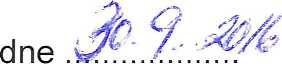 dne 30.9.2016